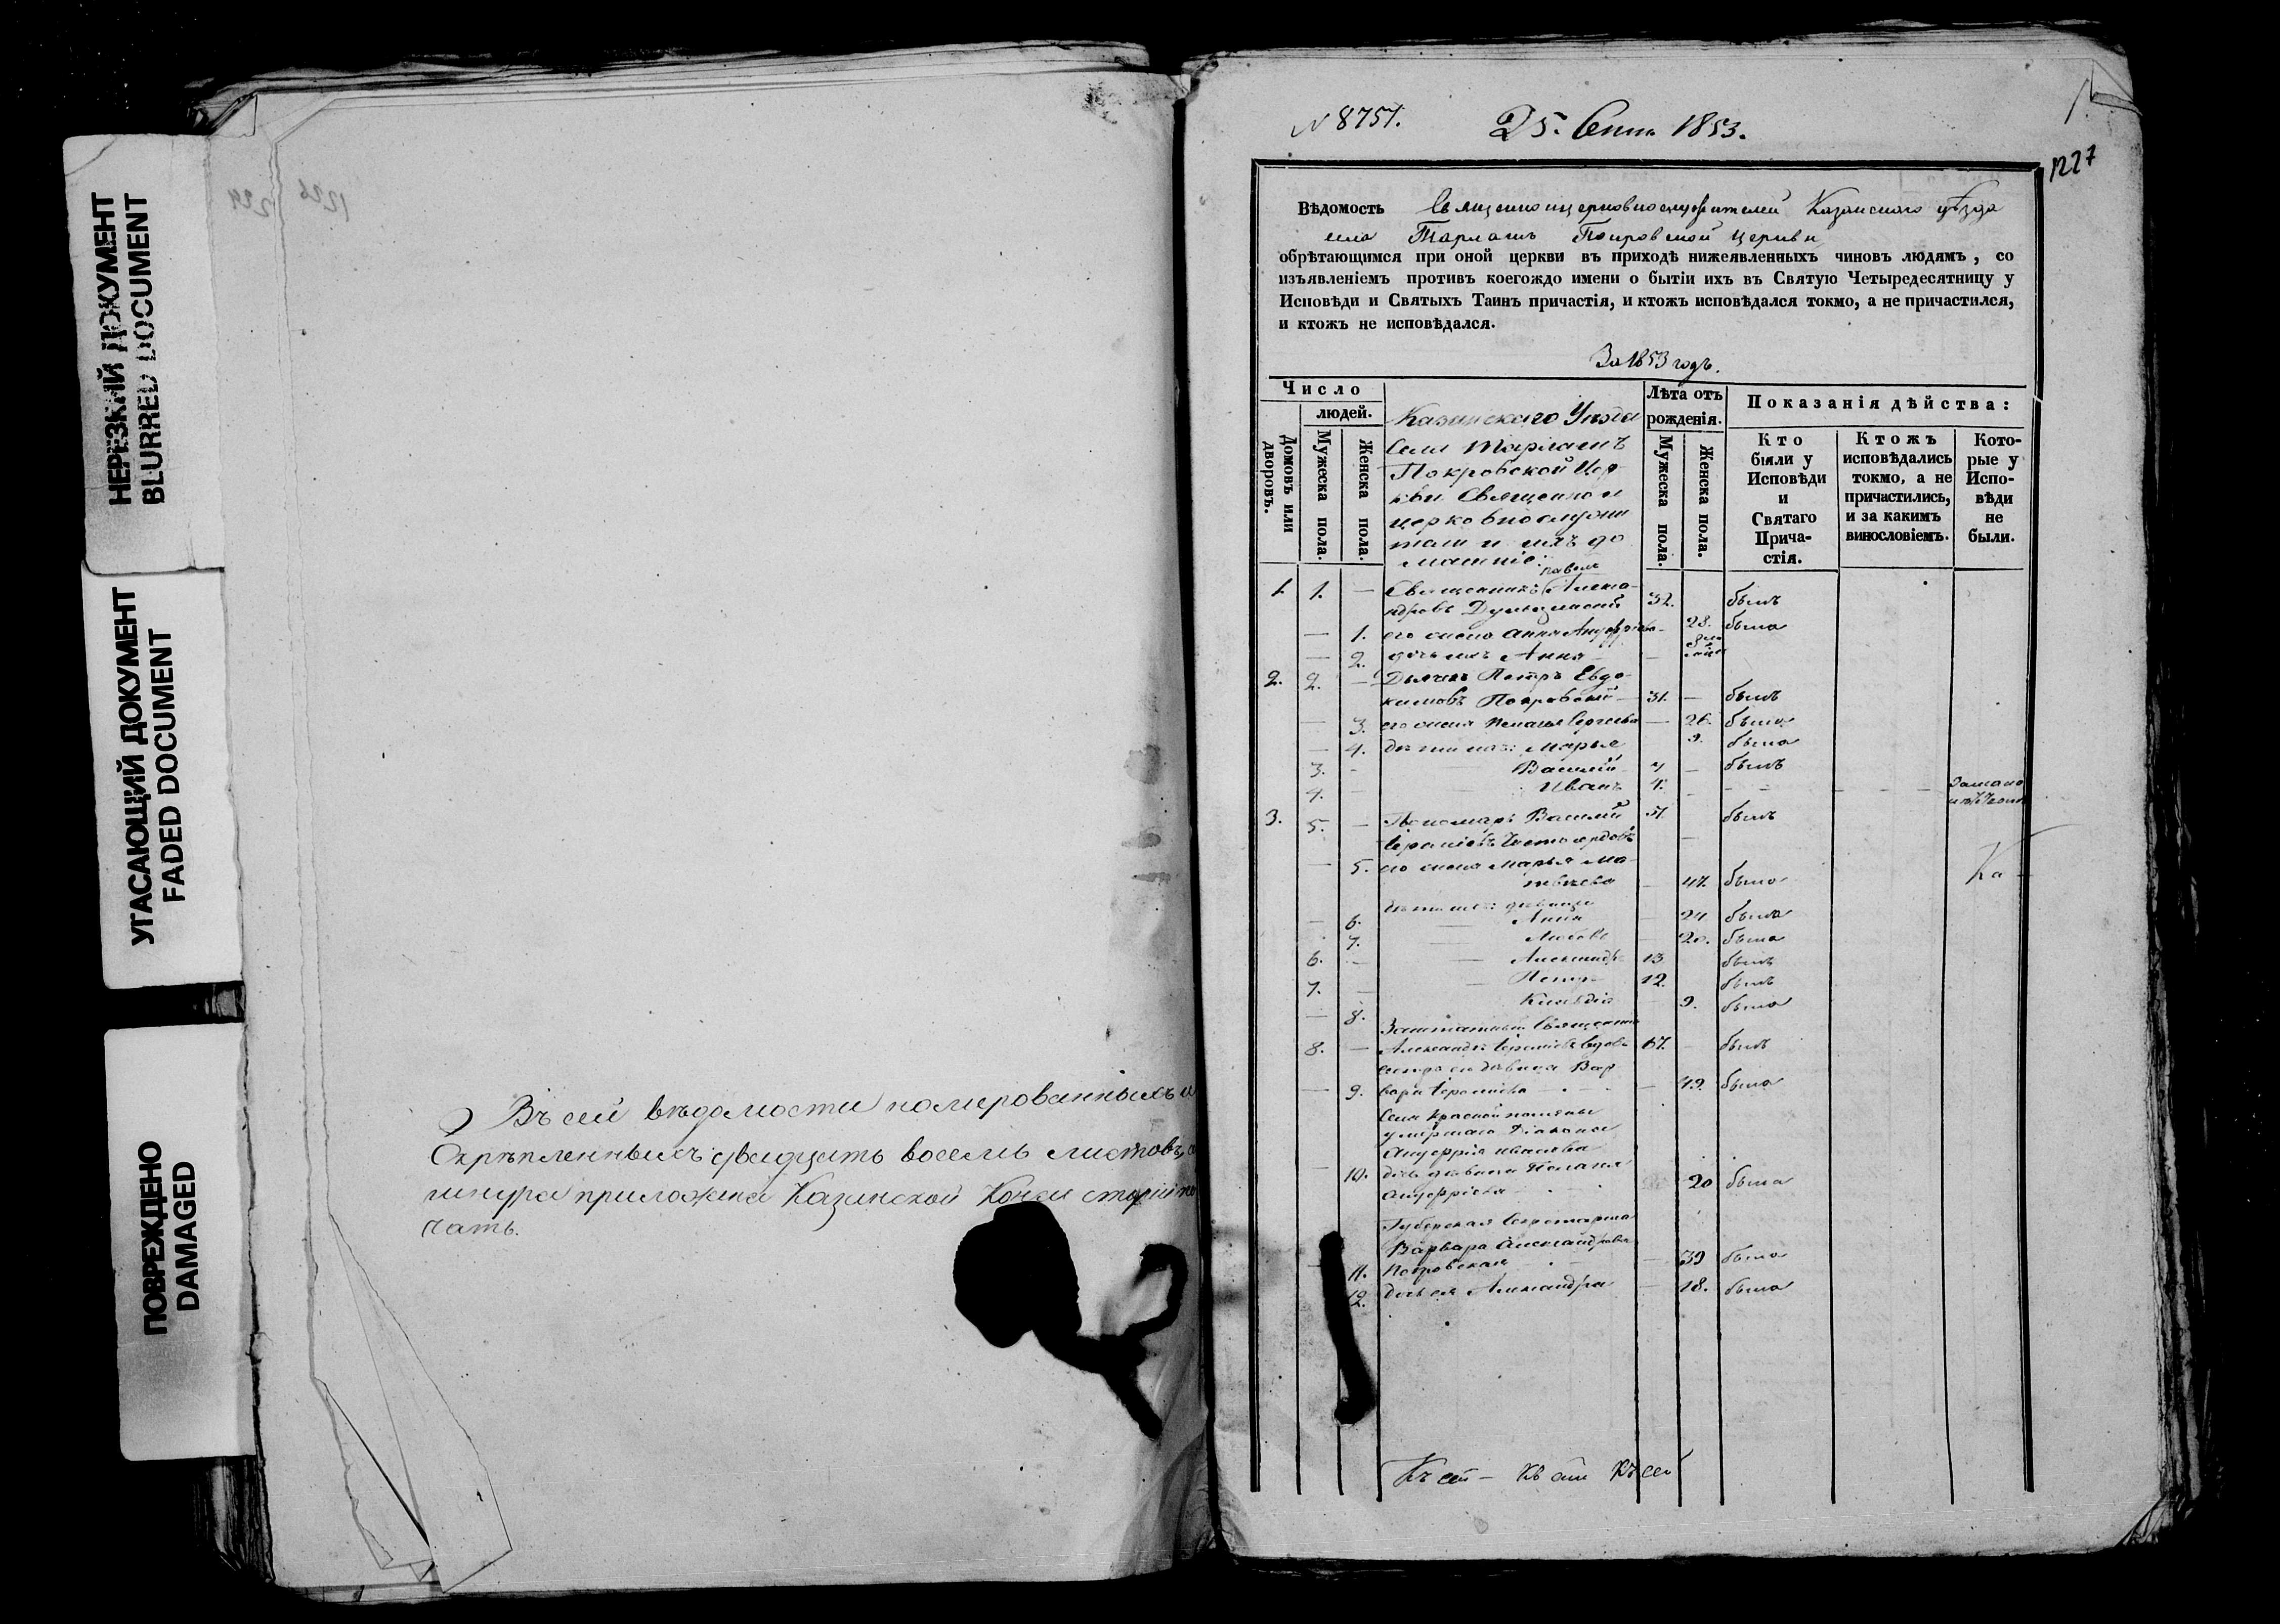 НЕРЕЗКИЙ ДОКУМЕНТ
BLURRED DOCUMENT
УГАСАЮЩИЙ ДОКУМЕНТ
FADED DOCUMENT
ПОВРЕЖДЕНО
DAMAGED
Въ сей вѣдомости номерованныхъ и
Скрѣпленныхъ двадцать восемь листовъ, а
шнура приложена Казанской Консисторіи пе
чать.
N 8751.
25. Сент. 1853.
1227
Вѣдомость Священноицерковнослужителей Казанскаго уѣзда
села Тарлашъ Покровской церкви
обрѣтающимся при оной церкви въ приходѣ нижеявленныхъ чиновъ людямъ, со
изъявленіемъ противъ коегождо имени о бытіи ихъ въ Святую Четыредесятницу у
Исповѣди и Святыхъ Таинъ причастія, и ктожъ исповѣдался токмо, а не причастился,
и ктожъ не исповѣдался.
За 1853 годъ.
Число
людей.
Домовъ или дворовъ.
Мужеска пола.
Женска пола.
Казанскаго Уѣзда
Села Тарлашъ
Покровской Цер-
кви Священно и
церковнослужи
тели и ихъ до
машніе:
Лѣта отъ рожденія.
Мужеска пола.
Женска пола.
Показанія дѣйства:
Кто были у Исповѣди и Святаго Причастія.
Ктожъ исповѣдались токмо, а не причастились, и за какимъ винословіемъ.
Которые у Исповѣди не были.
Павелъ
1. 1. — Священникъ Алекса-
ндровъ 32. былъ
— 1. его жена Анна 28. была
— 2. дочь ихъ Анна —
2. 2. — Дьячекъ Петръ Евдо-
кимовъ Покровскій — 31. — былъ
— 3. его жена Пелагья Сергеева — 26. была
— 4. дѣти ихъ: Марья 9. была
3. - Василій 7 — былъ
4. Иванъ 4.
3. 5. — Пономарь Василій 51. былъ
— 5. его жена Марья Ма-
твѣева — 47. была
дѣти ихъ: девицы
— 6. Анна 24 была
7. Любовь 20. была
6. — Александръ 13 былъ
7. — Петръ 12. былъ
— 8. Клавдія 9. была
Заштатный Священникъ
8. — Александръ 67. былъ
сестра его дѣвица Вар
— 9. вара — 49. была
Села Красной поляны
умершаго Діакона
Андреева
10. дочь девица Пелагея
20 была
Губернская Секретарша
Варвара Александрова
11. Петровская — 39 была
12. дочь ея Александра — 18. была
Ка -
Къ сей - Къ сей Къ сей